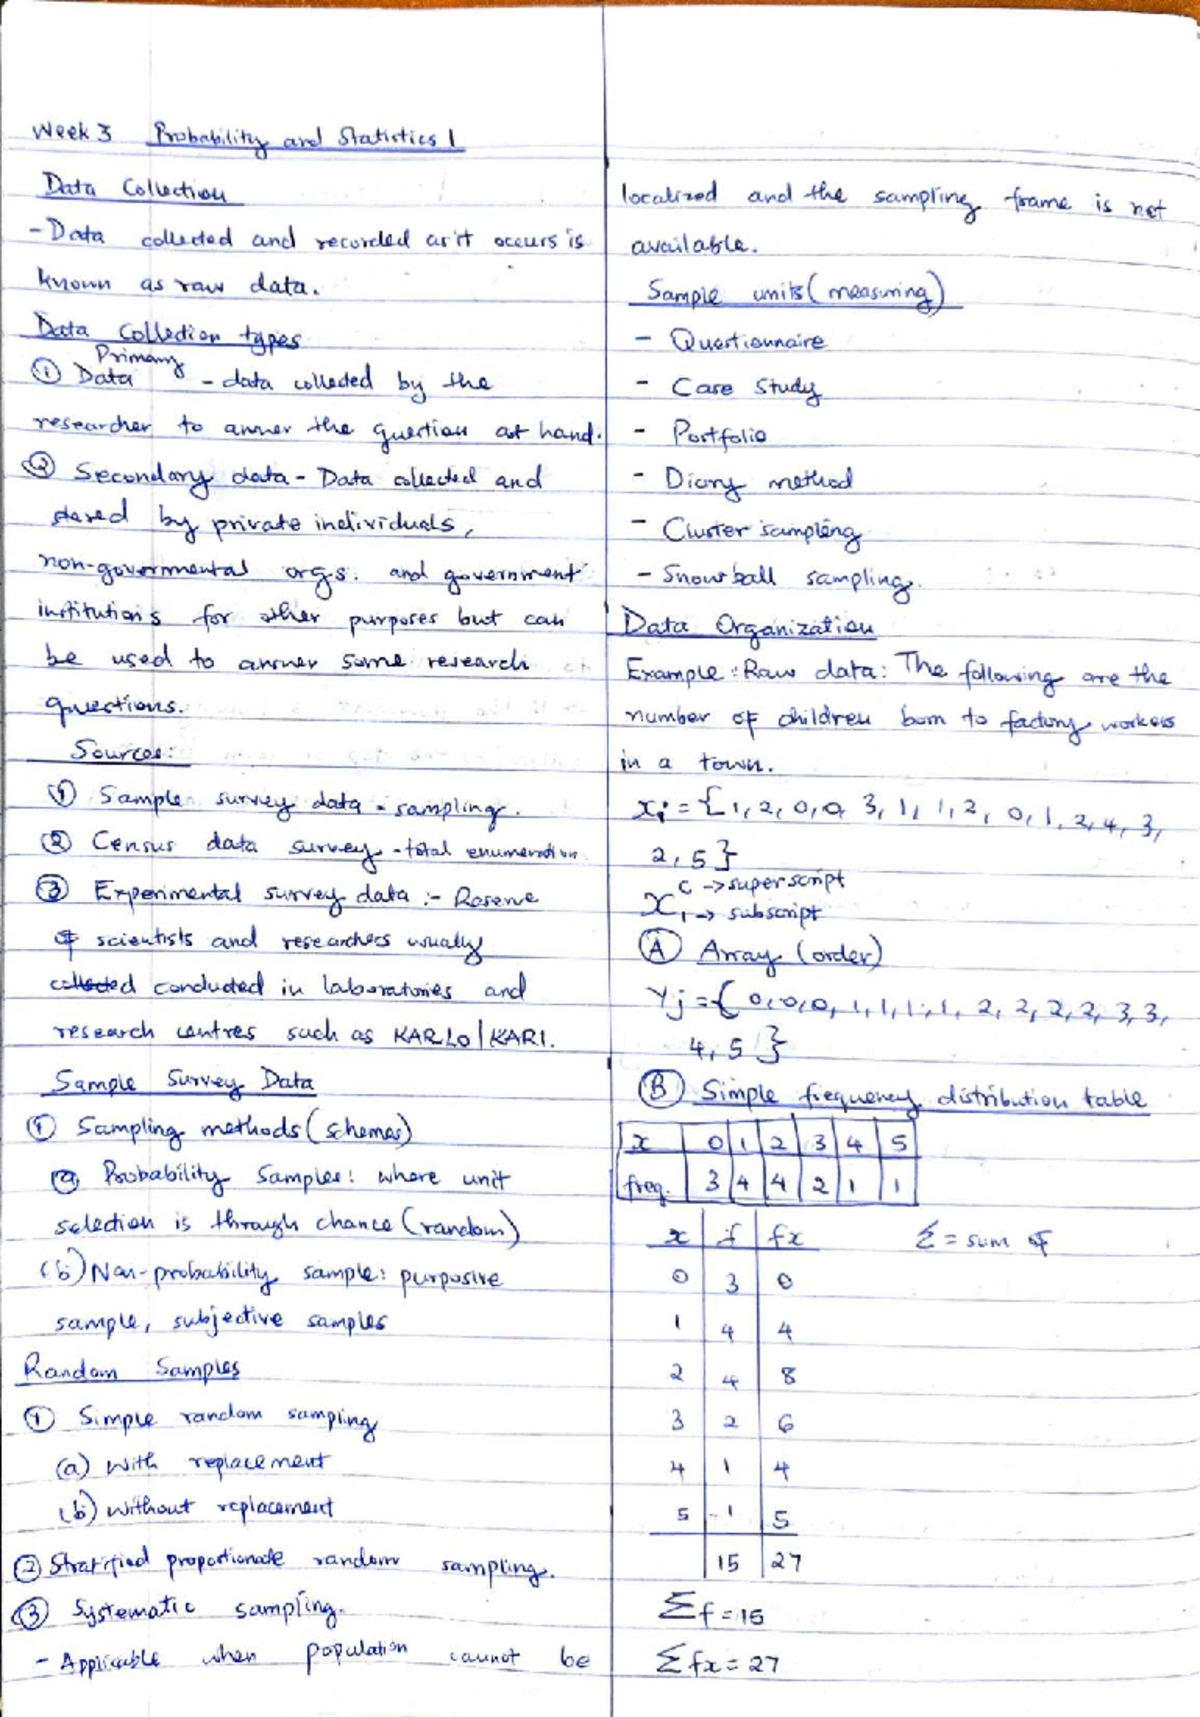 Week 3 Probability and Statistics 1
Data Collection
- Data collected and recorded as it occurs is
known as raw data.
Data Collection types
Primary
① Data - data collected by the
researcher to answer the question at hand.
② Secondary data - Data collected and
stored by private individuals,
non-governmental orgs. and government
institutions for other purposes but can
be used to answer some research
questions.
Sources:
① Sample survey data - sampling.
② Census data survey - total enumeration.
③ Experimental survey data :- Reserve
of scientists and researchers usually
collected conducted in laboratories and
research centres such as KARLO/KARI.
Sample Survey Data
① Sampling methods (schemes)
(a) Probability Samples: where unit
selection is through chance (random)
(b) Non-probability sample: purposive
sample, subjective samples
Random Samples
① Simple random sampling
(a) With replacement
(b) without replacement
② Stratified proportionate random sampling.
③ Systematic sampling.
- Applicable when population cannot be
localized and the sampling frame is not
available.
Sample units (measuring)
- Questionnaire
- Case Study
- Portfolio
- Diary method
- Cluster sampling
- Snowball sampling.
Data Organization
Example: Raw data: The following are the
number of children born to factory workers
in a town.
xi = {1, 2, 0, 0, 3, 1, 1, 2, 0, 1, 2, 4, 3,
2, 5}
c -> superscript
x1 -> subscript
Ⓐ Array (order)
Yj = {0, 0, 0, 1, 1, 1, 1, 2, 2, 2, 2, 3, 3,
4, 5}
Ⓑ Simple frequency distribution table
x 0 1 2 3 4 5
freq. 3 4 4 2 1 1
x f fx Σ = sum of
0 3 0
1 4 4
2 4 8
3 2 6
4 1 4
5 1 5
15 27
Σf = 15
Σfx = 27